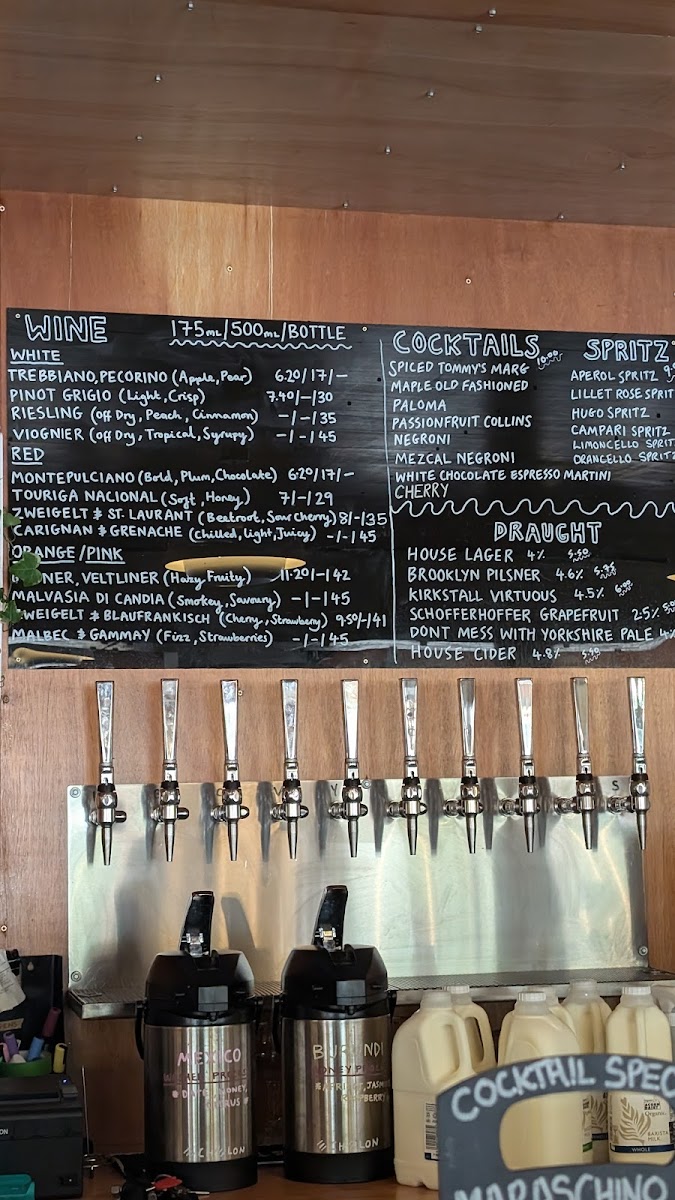 WINE 175ML/500ML/BOTTLE
WHITE
TREBBIANO, PECORINO (Apple, Pear) 6.20/17/-
PINOT GRIGIO (Light, Crisp) 7.40/-/30
RIESLING (Off Dry, Peach, Cinnamon) -/-/35
VIOGNIER (Off Dry, Tropical, Syrupy) -/-/45
RED
MONTEPULCIANO (Bold, Plum, Chocolate) 6.20/17/-
TOURIGA NACIONAL (Soft, Honey) 7/-/29
ZWEIGELT & ST. LAURANT (Beatroot, Sour Cherry) 8/-/35
CARIGNAN & GRENACHE (Chilled, Light, Juicy) -/-/45
ORANGE/PINK
NER, VELTLINER (Hazy, Fruity) 11.20/-/42
MALVASIA DI CANDIA (Smokey, Savoury) -/-/45
ZWEIGELT & BLAUFRANKISCH (Cherry, Strawberry) 9.50/-/41
MALBEC & GAMMAY (Fizz, Strawberries) -/-/45
COCKTAILS 10.00
SPICED TOMMY'S MARG
MAPLE OLD FASHIONED
PALOMA
PASSIONFRUIT COLLINS
NEGRONI
MEZCAL NEGRONI
WHITE CHOCOLATE ESPRESSO MARTINI
CHERRY
SPRITZ
APEROL SPRITZ
LILLET ROSE SPRIT
HUGO SPRITZ
CAMPARI SPRITZ
LIMONCELLO SPRIT
ORANCELLO SPRITZ
DRAUGHT
HOUSE LAGER 4% 5.50
BROOKLYN PILSNER 4.6% 5.95
KIRKSTALL VIRTUOUS 4.5% 6.00
SCHOFFERHOFFER GRAPEFRUIT 2.5%
DONT MESS WITH YORKSHIRE PALE 4%
HOUSE CIDER 4.8% 5.50
MEXICO
BURUNDI
COCKTAIL SPEC
MARASCHINO
Organic
BARISTA
MILK
WHOLE